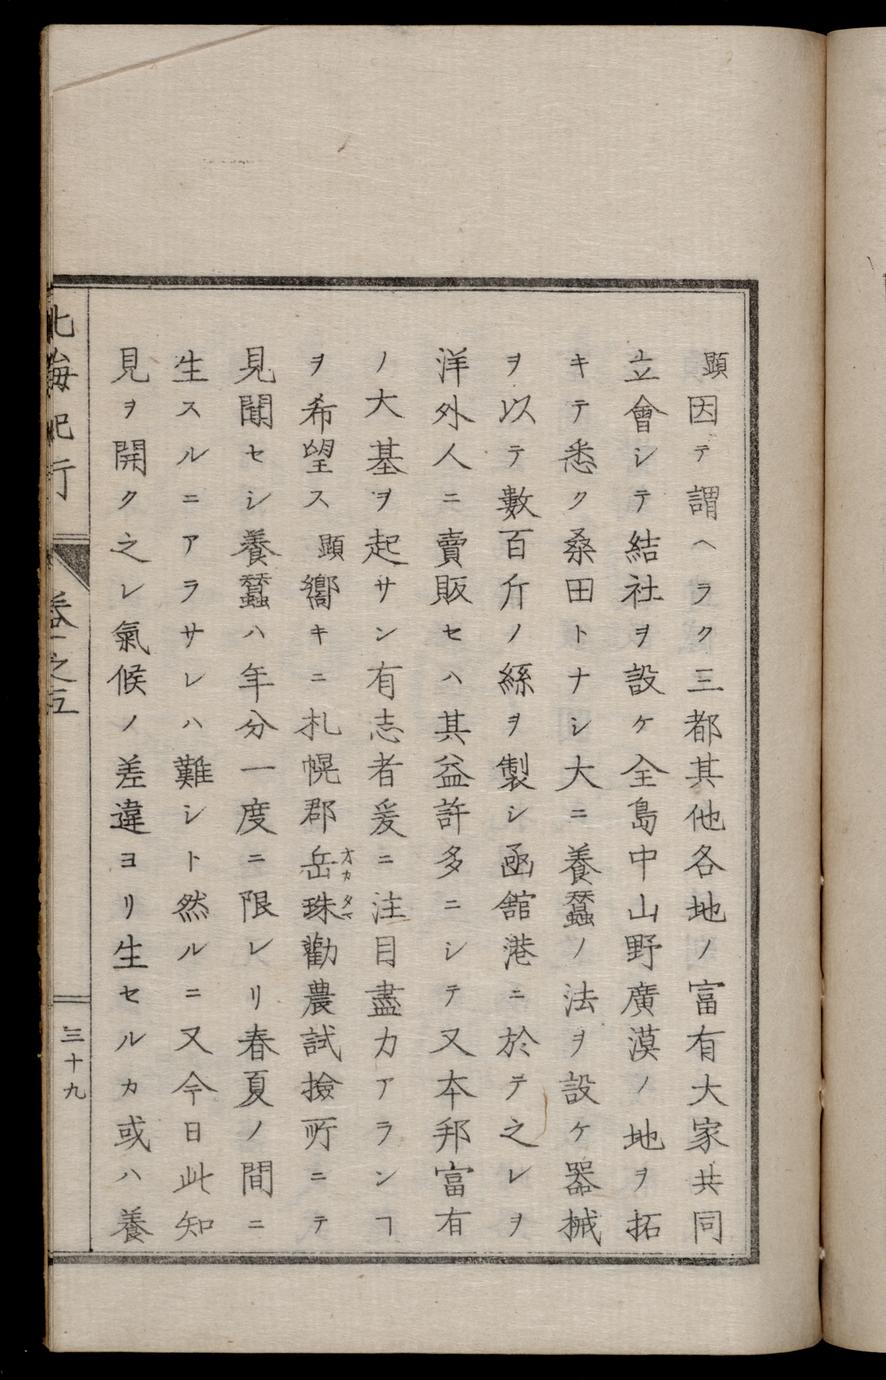 顕因テ謂ヘラク三都其他各地ノ富有大家共同
立會シテ結社ヲ設ケ全島中山野廣漠ノ地ヲ拓
キテ悉ク桑田トナシ大ニ養蠶ノ法ヲ設ケ器械
ヲ以テ數百斤ノ絲ヲ製シ凾舘港ニ於テ之レヲ
洋外人ニ賣販セハ其益許多ニシテ又本邦富有
ノ大基ヲ起サン有志者爰ニ注目盡力アランヿ
ヲ希望ス顕嚮キニ札幌郡岳珠勸農試撿所ニテ
オカタマ
見聞セシ養蠶ハ年分一度ニ限レリ春夏ノ間ニ
生スルニアラサレハ難シト然ルニ又今日此知
見ヲ開ク之レ氣候ノ差違ヨリ生セルカ或ハ養
北海紀行
卷之五
三十九